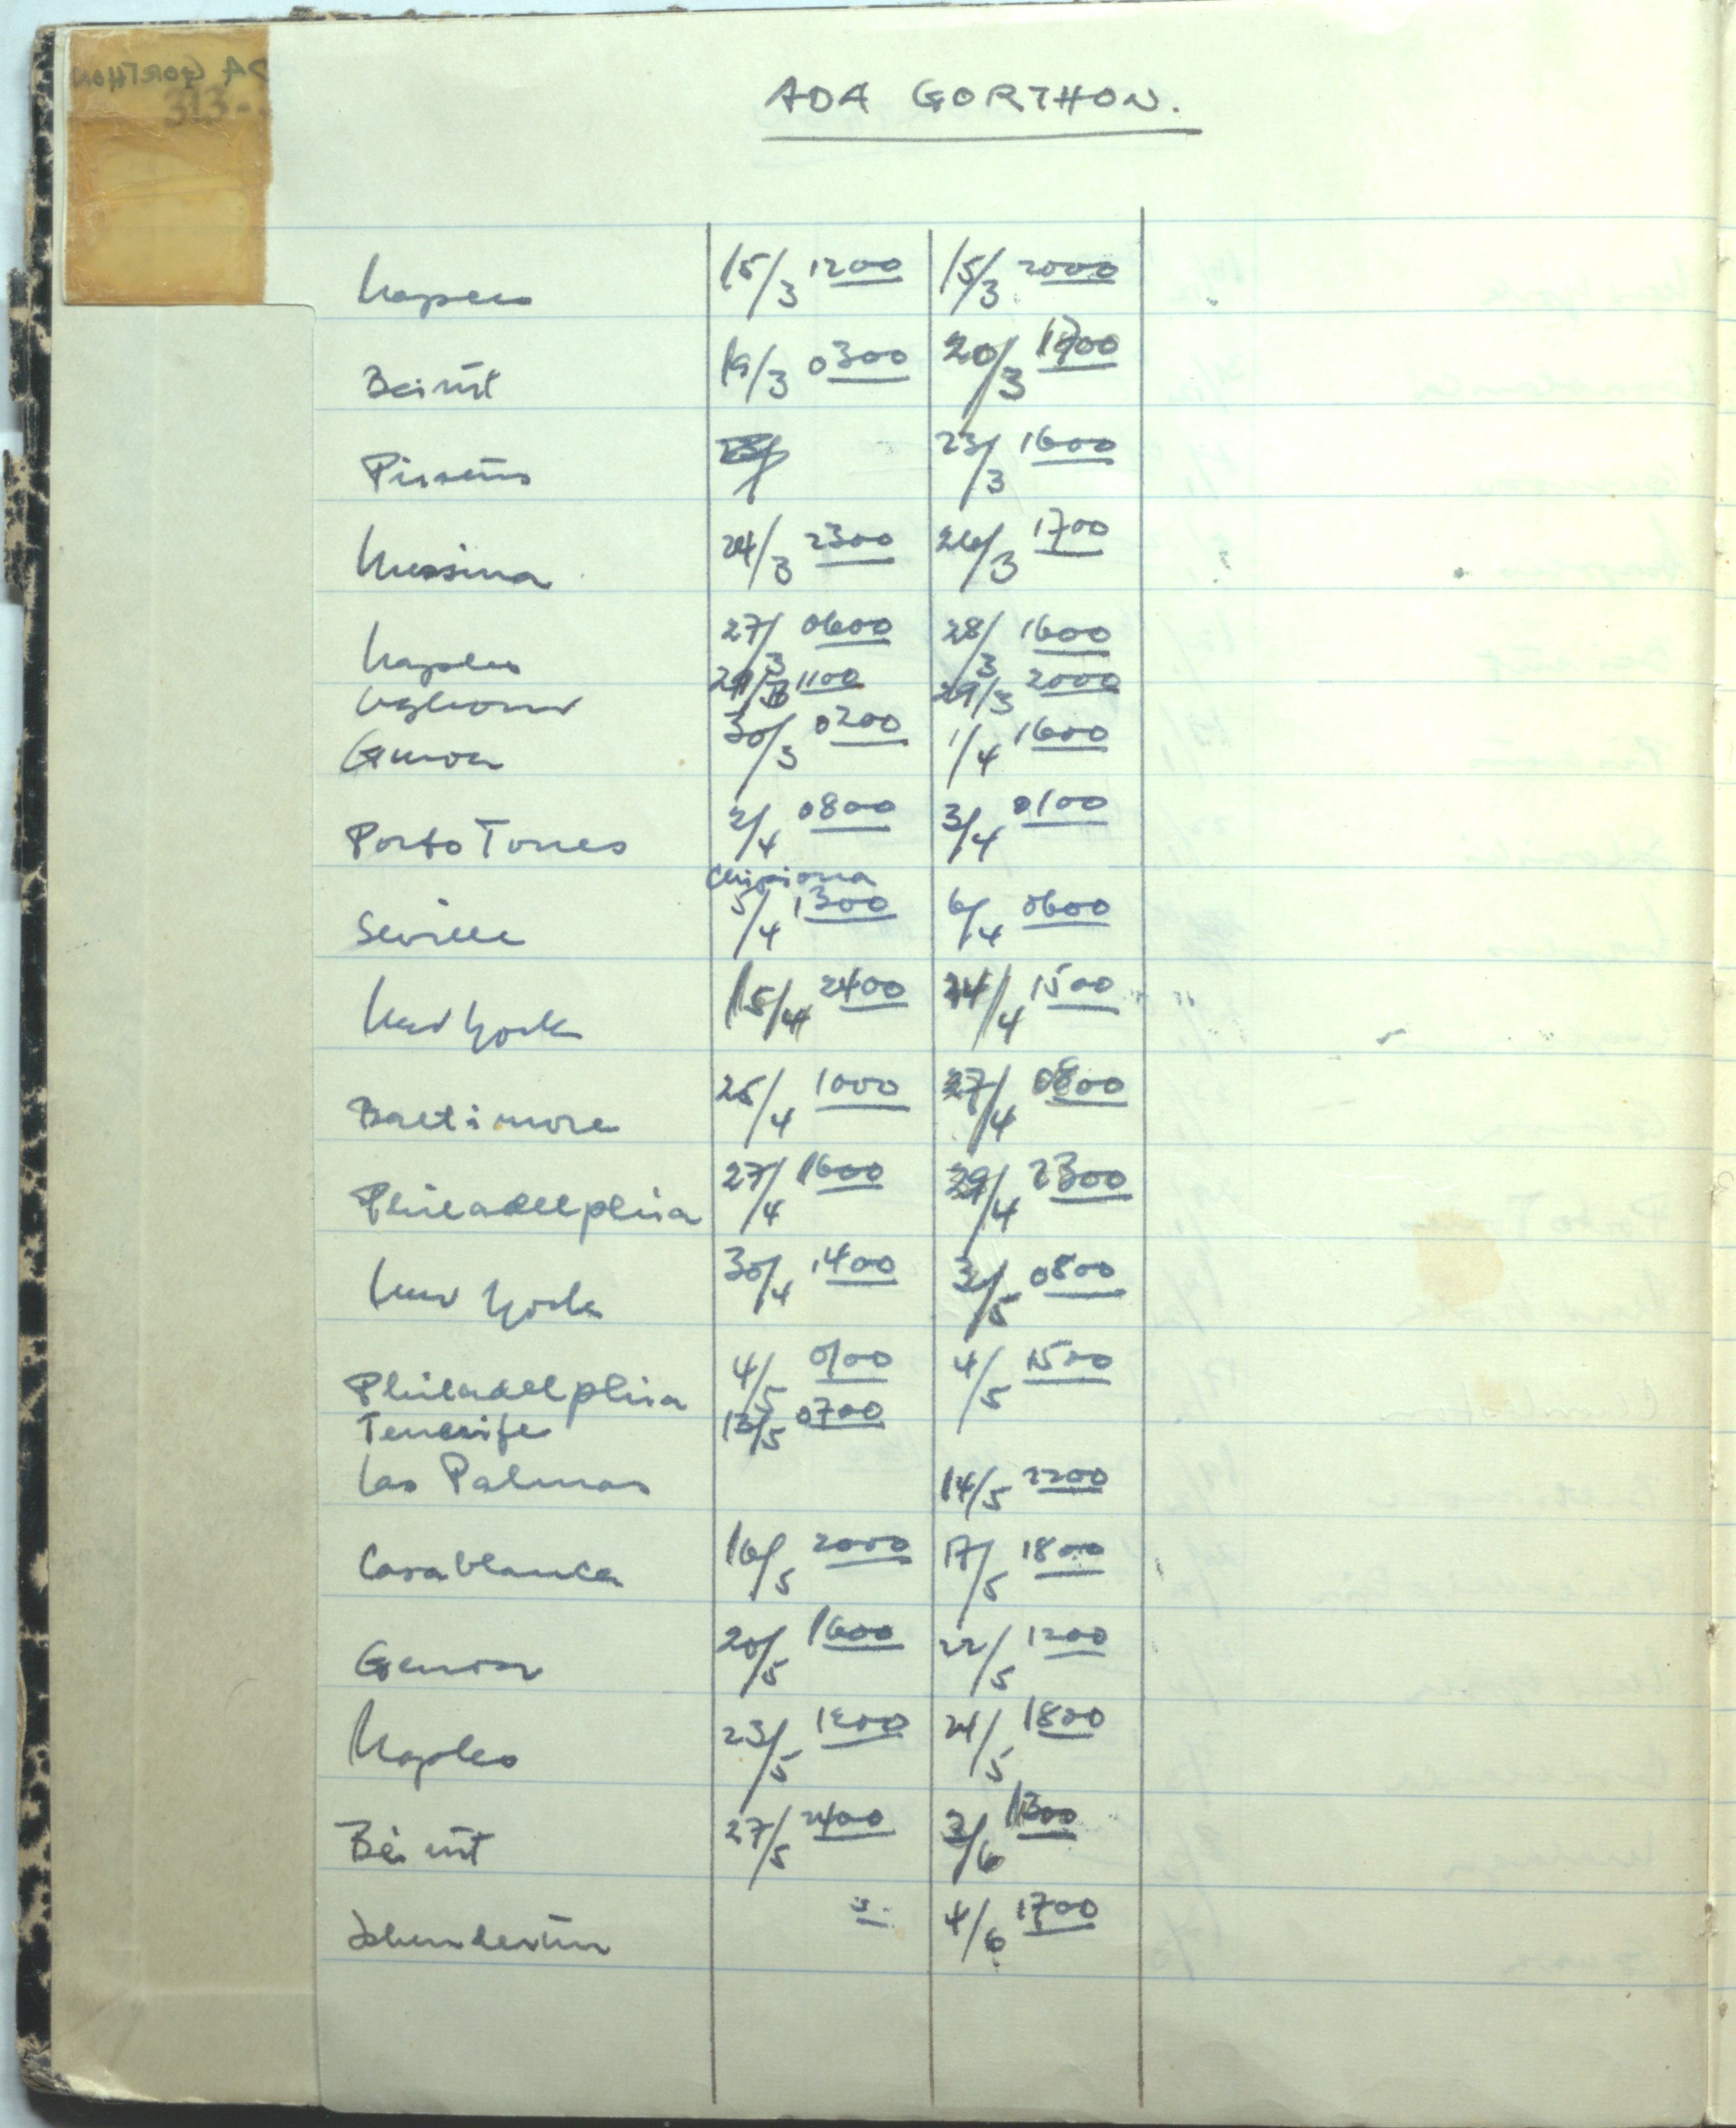 ADA GORTHON.
313-
15/3 1200 15/3 2000
Beirut 19/3 0300 20/3
Piraeus 23/3 1600
Messina 24/3 2300 26/3 1700
Naples 27/3 0600 28/3 1600
Leghorn 29/3 1100 29/3 2000
Genoa 30/3 0200 1/4 1600
Porto Torres 2/4 0800 3/4 0100
Chipiona
Seville 5/4 1300 6/4 0600
New York 15/4 2400 24/4 1500
Baltimore 25/4 1000 27/4 0800
Philadelphia 27/4 1600 29/4 2300
New York 30/4 1400 3/5 0800
Philadelphia 4/5 0100 4/5 1500
Tenerife 13/5 0700
Las Palmas 14/5 2200
Casablanca 16/5 2000 17/5 1800
Genoa 20/5 1600 22/5 1200
Naples 23/5 24/5 1800
Beirut 27/5 2400 3/6
Iskenderun 4/6 1700